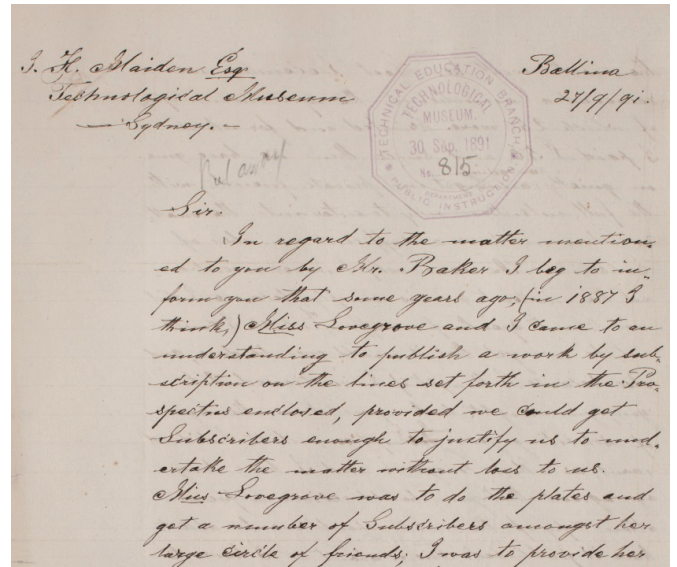 J. H. Maiden Esq
Technological Museum
Sydney.
Ballina
27/9/91.
TECHNICAL EDUCATION BRANCH
TECHNOLOGICAL
MUSEUM.
30 Sep. 1891
No. 815
DEPARTMENT
PUBLIC INSTRUCTION
Put away
Sir.
In regard to the matter mention-
ed to you by Mr. Baker I beg to in-
form you that some years ago, (in 1887 I
think,) Miss Lovegrove and I came to an
understanding to publish a work by sub-
scription on the lines set forth in the Pro-
spectus enclosed, provided we could get
Subscribers enough to justify us to und-
ertake the matter without loss to us.
Miss Lovegrove was to do the plates and
get a number of Subscribers amongst her
large circle of friends; I was to provide her